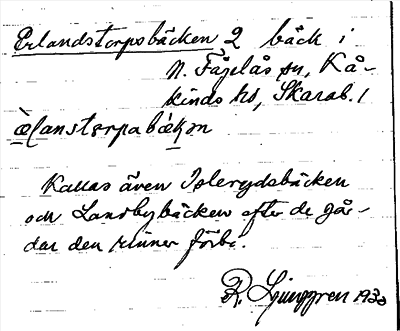 Erlandstorpsbäcken 2 bäck i
N. Fågelås sn, Kå-
kinds hd, Skarab. l
æ̀lanstɛrpabǽkən
Kallas även Islerydsbäcken
och Landbybäcken efter de går-
dar den rinner förbi.
R. Ljunggren 1933